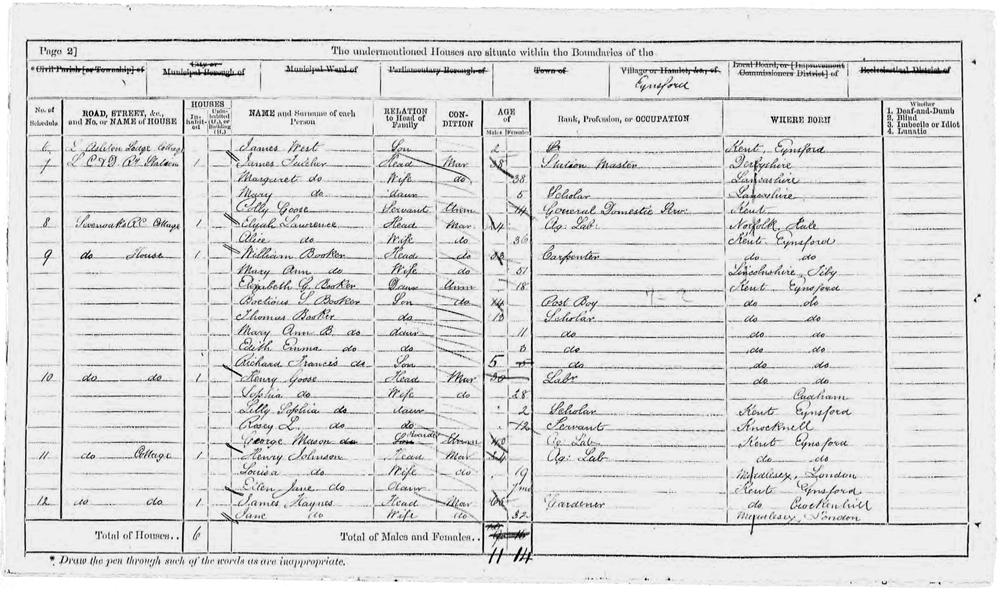 Page 2] The undermentioned Houses are situate within the Boundaries of the
*Civil Parish [or Township] of City or Municipal Borough of Municipal Ward of Parliamentary Borough of Town of Village or Hamlet, &c., of Local Board, or [Improvement Commissioners District] of Ecclesiastical District of
Eynsford
No. of Schedule ROAD, STREET, &c., and No. or NAME of HOUSE HOUSES Inhabited Uninhabited (U.), or Building (B.) NAME and Surname of each Person RELATION to Head of Family CONDITION AGE of Males Females Rank, Profession, or OCCUPATION WHERE BORN Whether 1. Deaf-and-Dumb 2. Blind 3. Imbecile or Idiot 4. Lunatic
6 Lodge Cottage James West Son 2 Kent, Eynsford
7 L C & D Ry Station 1 James Head Mar 38 Station Master Derbyshire
Margaret do Wife do 38 Lancashire
Mary do daur 5 Scholar Lancashire
Polly Goose Servant Unm 14 General Domestic Serv. Kent
8 Sevenoaks Rd Cottage 1 Elijah Lawrence Head Mar 34 Ag: Lab: Norfolk, Hale
Alice do Wife do 36 Kent, Eynsford
9 do House 1 William Booker Head do Carpenter do do
Mary Ann do Wife do 51 Lincolnshire,
Elizabeth G. Booker Daur Unm 18 Kent, Eynsford
S Booker Son do 14 Post Boy do do
Thomas Booker do 13 Scholar do do
Mary Ann B. do daur 11 do do do
Edith Emma do do 8 do do do
Richard Francis do Son 5 do do do
10 do do 1 Henry Goose Head Mar 30 Labr do do
Sophia do Wife do 28 Cudham
Lilly Sophia do daur 2 Scholar Kent Eynsford
Rosey L. do do 12 Servant Knockhall
George Mason do Boarder Unm 40 Ag: Lab Kent Eynsford
11 do Cottage 1 Henry Johnson Head Mar 24 Ag: Lab do do
Louisa do Wife do 19 Middlesex, London
Ellen Jane do daur 7mo Kent Eynsford
12 do do 1 James Haynes Head Mar 60 Gardener do Crockenhill
Jane do Wife do 32 Middlesex, London
Total of Houses.. 6 Total of Males and Females..
11 14
* Draw the pen through such of the words as are inappropriate.